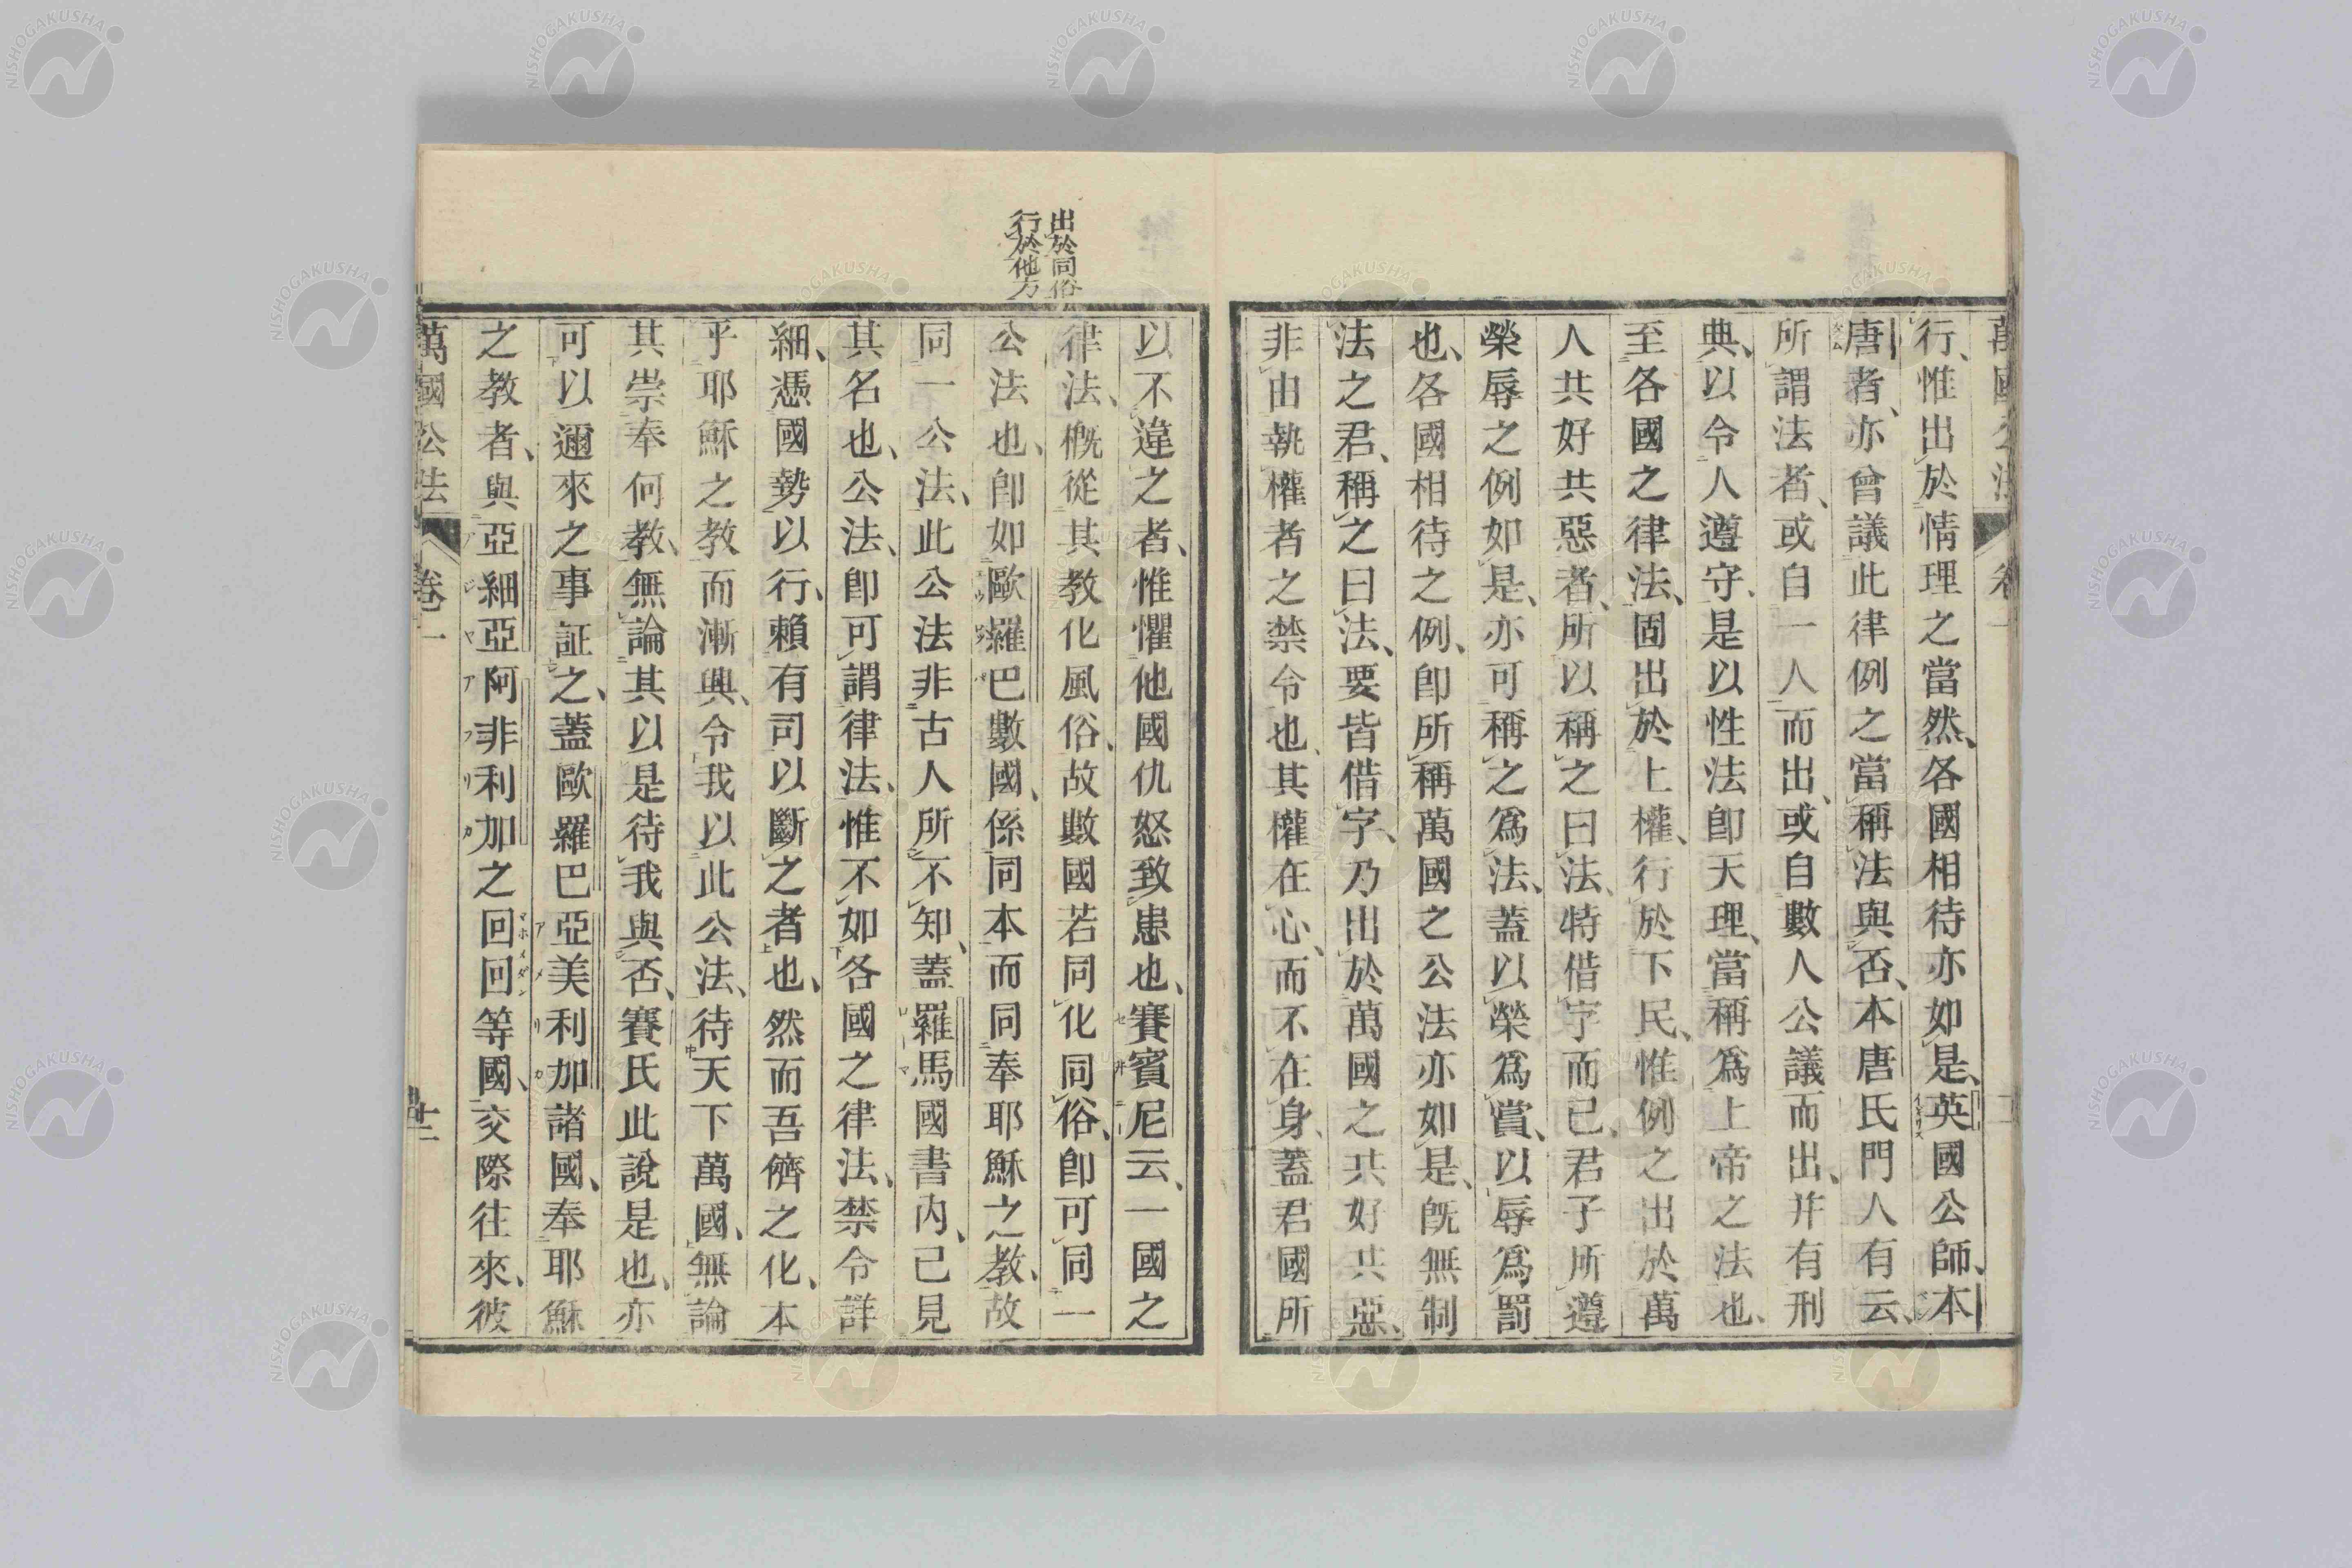 萬國公法 卷一
行、惟出於情理之當然、各國相待亦如是、英國公師、本
唐者、亦曾議此律例之當稱法與否、本唐氏門人有云、
所謂法者、或自一人而出、或自數人公議而出、并有刑
典、以令人遵守、是以性法卽天理、當稱爲上帝之法也、
至各國之律法、固出於上權、行於下民、惟例之出於萬
人共好共惡者、所以稱之曰法、特借字而已、君子所遵
榮辱之例如是、亦可稱之爲法、蓋以榮爲賞、以辱爲罰
也、各國相待之例、卽所稱萬國之公法亦如是、旣無制
法之君、稱之曰法、要皆借字、乃出於萬國之共好共惡、
非由執權者之禁令也、其權在心、而不在身、蓋君國所
出於同俗
行於他方
以不違之者、惟懼他國仇怒致患也、賽賓尼云、一國之
律法、概從其教化風俗、故數國若同化同俗、卽可同一
公法也、卽如歐羅巴數國、係同本而同奉耶穌之教、故
同一公法、此公法非古人所不知、蓋羅馬國書內、已見
其名也、公法、卽可謂律法、惟不如各國之律法、禁令詳
細、憑國勢以行、賴有司以斷之者也、然而吾儕之化、本
乎耶穌之教而漸興、令我以此公法、待天下萬國、無論
其崇奉何教、無論其以是待我與否、賽氏此說是也、亦
可以邇來之事証之、蓋歐羅巴亞美利加諸國、奉耶穌
之教者、與亞細亞阿非利加之回回等國、交際往來、彼
萬國公法 卷一 十二
NISHOGAKUSHA